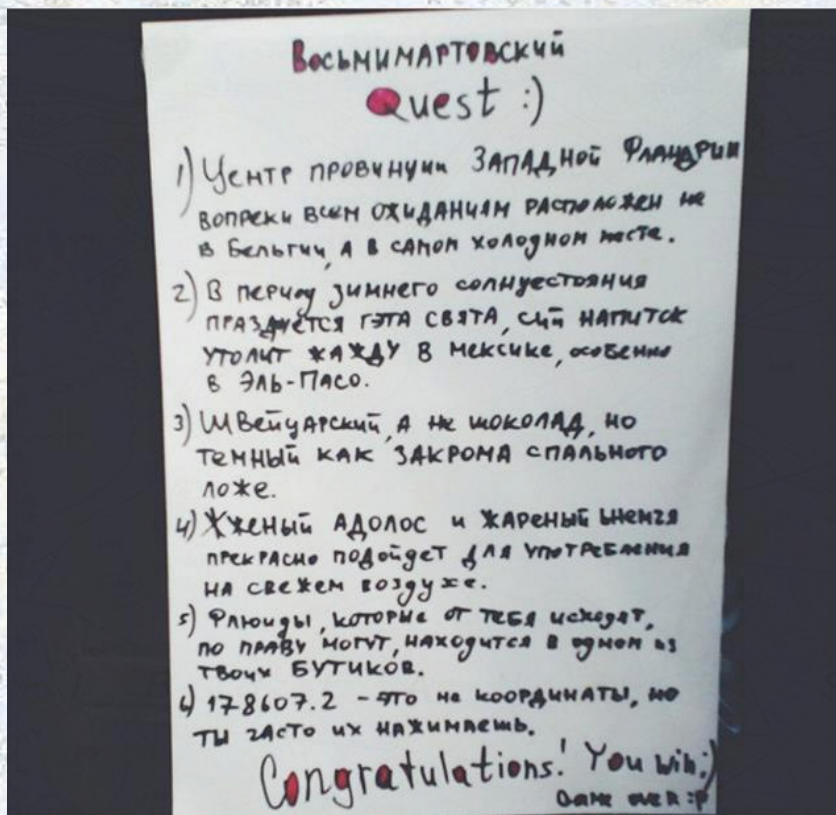 Восьмимартовский
Quest :)
1) Центр провинции Западной Фландрии
вопреки всем ожиданиям расположен не
в Бельгии, а в самом холодном месте.
2) В период зимнего солнцестояния
празднуется гэта свята, сий напиток
утолит жажду в Мексике, особенно
в Эль-Пасо.
3) Швейцарский, а не шоколад, но
темный как закрома спального
ложе.
4) Жженый адолос и жареный
прекрасно подойдет для употребления
на свежем воздухе.
5) Флюиды, которые от тебя исходят,
по праву могут, находится в одном из
твоих бутиков.
6) 178607.2 - это не координаты, но
ты часто их нажимаешь.
Congratulations! You win :)
Game over :p